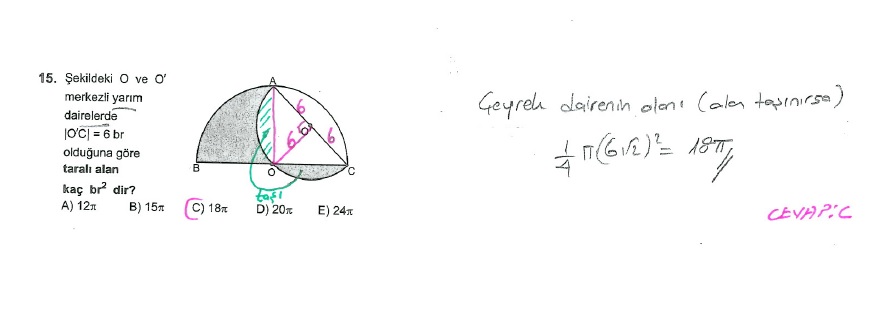 15. Şekildeki O ve O'
merkezli yarım
dairelerde
|O'C| = 6 br
olduğuna göre
taralı alan
kaç br² dir?
A) 12π B) 15π C) 18π D) 20π E) 24π
A
6
6
O'
6
B
O
C
taşı
Çeyrek dairenin alanı (alan taşınırsa)
1/4 π(6√2)² = 18π
CEVAP: C